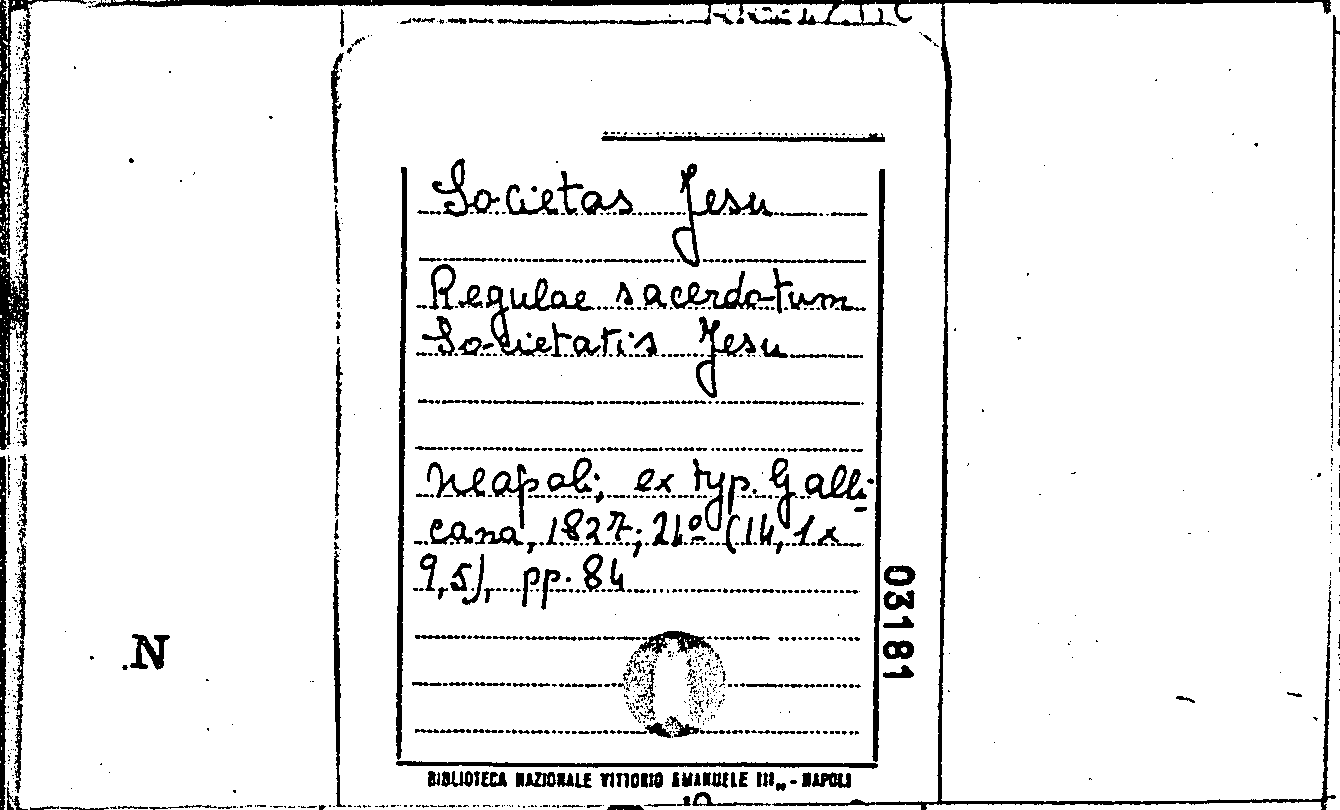 Societas Jesu
Regulae sacerdotum
Societatis Jesu
Neapoli, ex typ. Galli-
cana, 1827; 24º (14,1x
9,5), pp. 84
03181
N
BIBLIOTECA NAZIONALE VITTORIO EMANUELE III„ - NAPOLI